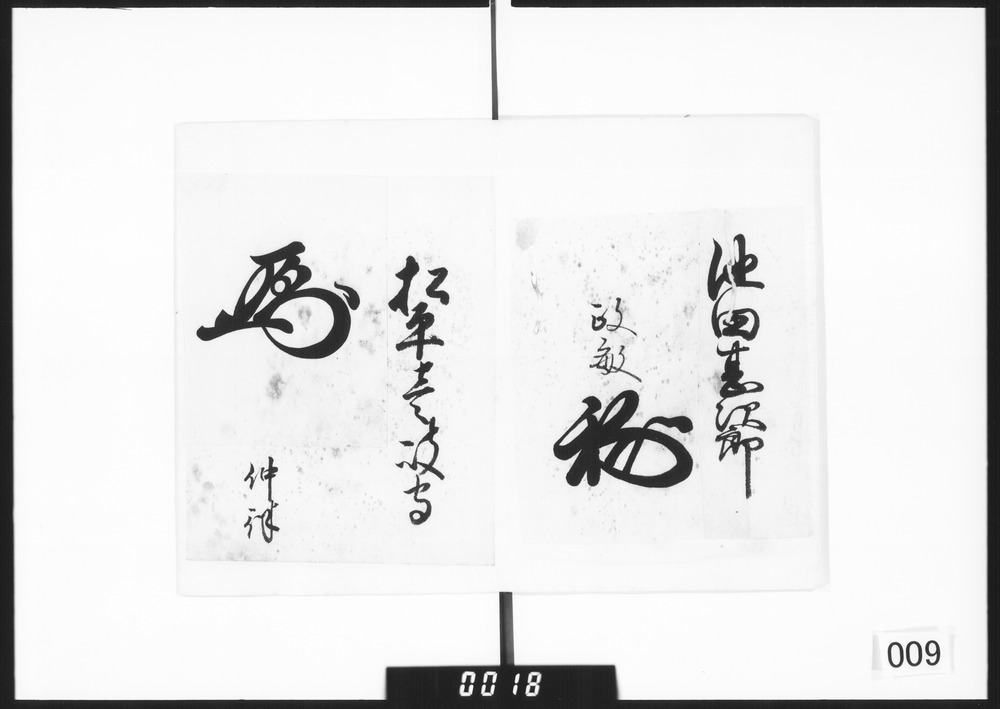 池田甚次郎
政敏
松平壱岐守
仲祥
009
0018